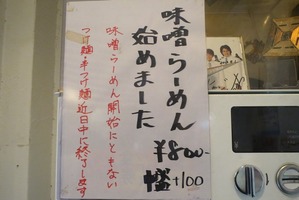 味噌らーめん
始めました
¥800-
盛+100
味噌らーめん開始にともない
つけ麺・辛つけ麺近日中に終了します